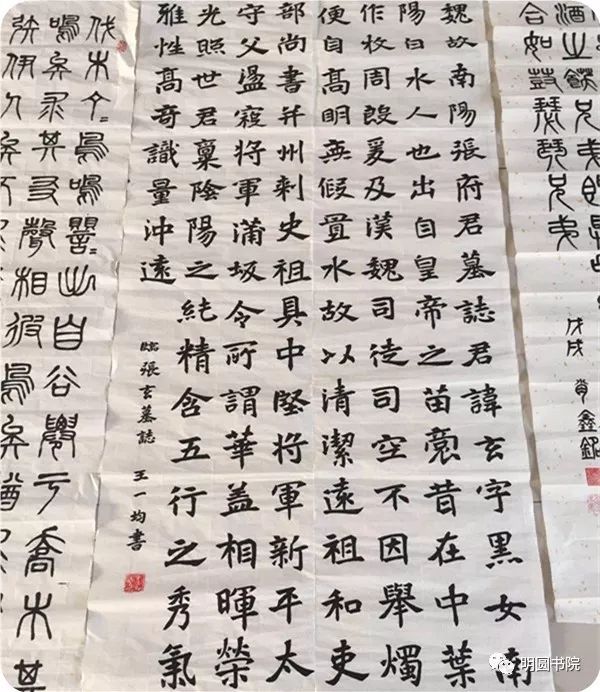 酒之飫兄弟既
合如鼓瑟琴兄弟
戊戌
鑫銘
魏故南陽張府君墓誌君諱玄字黑女南
陽白水人也出自皇帝之苗裔昔在中葉
作牧周殷爰及漢魏司徒司空不因舉燭
便自高明無假置水故以清潔遠祖和吏
部尚書并州刾史祖具中堅将軍新平太
守父盪寇将軍蒲坂令所謂華蓋相暉榮
光照世君稟陰陽之純精含五行之秀氣
雅性高奇識量沖遠
臨張玄墓誌 王一均書
伐木丁=鳥鳴嚶=出自谷遷于喬木其
鳴矣求其友聲相彼鳥矣猶
矧伊人矣不
明圆书院